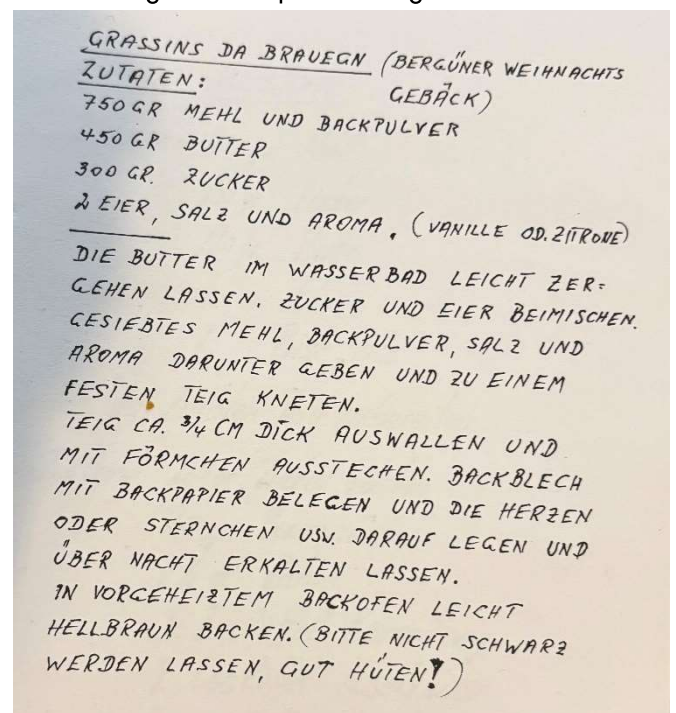 GRASSINS DA BRAUEGN (BERGÜNER WEIHNACHTS
GEBÄCK)
ZUTATEN:
750 GR MEHL UND BACKPULVER
450 GR BUTTER
300 GR. ZUCKER
2 EIER, SALZ UND AROMA. (VANILLE OD. ZITRONE)
DIE BUTTER IM WASSERBAD LEICHT ZER=
GEHEN LASSEN. ZUCKER UND EIER BEIMISCHEN.
GESIEBTES MEHL, BACKPULVER, SALZ UND
AROMA DARUNTER GEBEN UND ZU EINEM
FESTEN TEIG KNETEN.
TEIG CA. 3/4 CM DICK AUSWALLEN UND
MIT FÖRMCHEN AUSSTECHEN. BACKBLECH
MIT BACKPAPIER BELEGEN UND DIE HERZEN
ODER STERNCHEN USW. DARAUF LEGEN UND
ÜBER NACHT ERKALTEN LASSEN.
IN VORGEHEIZTEM BACKOFEN LEICHT
HELLBRAUN BACKEN. (BITTE NICHT SCHWARZ
WERDEN LASSEN, GUT HÜTEN!)